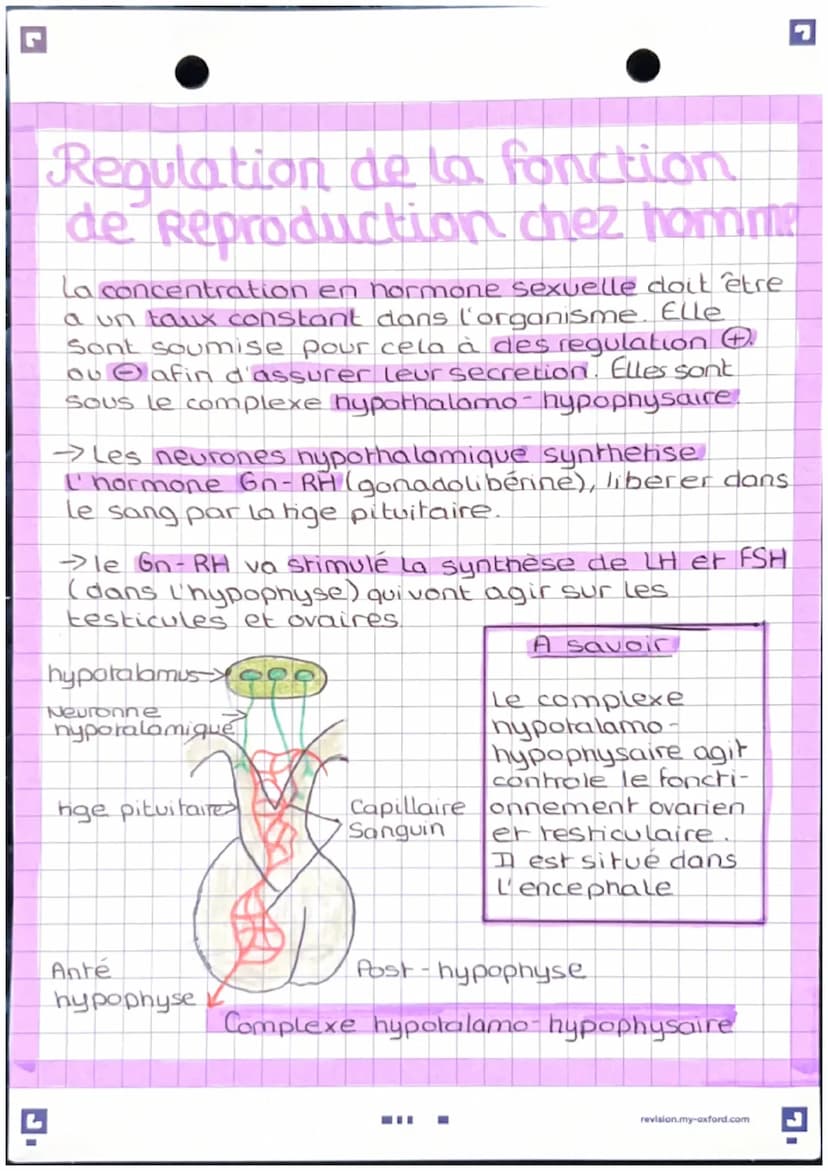 Regulation de la fonction
de Reproduction chez homme
La concentration en hormone sexuelle doit être
a un taux constant dans l'organisme. Elle
sont soumise pour cela à des regulation ⊕
ou ⊖ afin d'assurer leur secretion. Elles sont
sous le complexe hypothalamo-hypophysaire.
→ Les neurones hypothalamique synthetise
l'hormone Gn-RH (gonadolibérine), liberer dans
le sang par la tige pituitaire.
→ le Gn-RH va stimulé la synthèse de LH et FSH
(dans l'hypophyse) qui vont agir sur les
testicules et ovaires
hypotalamus
Neuronne
hypotalamique
tige pituitaire
Capillaire
Sanguin
Anté
hypophyse
Post-hypophyse
Complexe hypotalamo-hypophysaire
A savoir
Le complexe
hypotalamo-
hypophysaire agit
controle le foncti-
onnement ovarien
et testiculaire.
Il est situé dans
l'encephale
revision.my-oxford.com